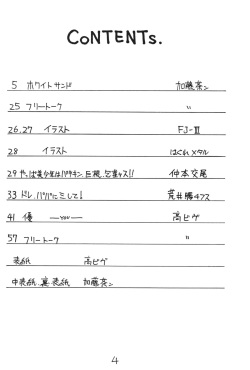 CoNTENTs.
5 ホワイトサンド 加藤茶ン
25 フリートーク 〃
26.27 イラスト FJ-Ⅲ
28 イラスト はぐれメタル
29 やっぱ美少女はパツキン、巨根、包茎っス!! 仲本交尾
33 ドレ、パパに見して! 荒井勝4フス
41 優 ―you― 高ビゲ
57 フリートーク 〃
表紙 高ビゲ
中表紙、裏表紙 加藤茶ン
4